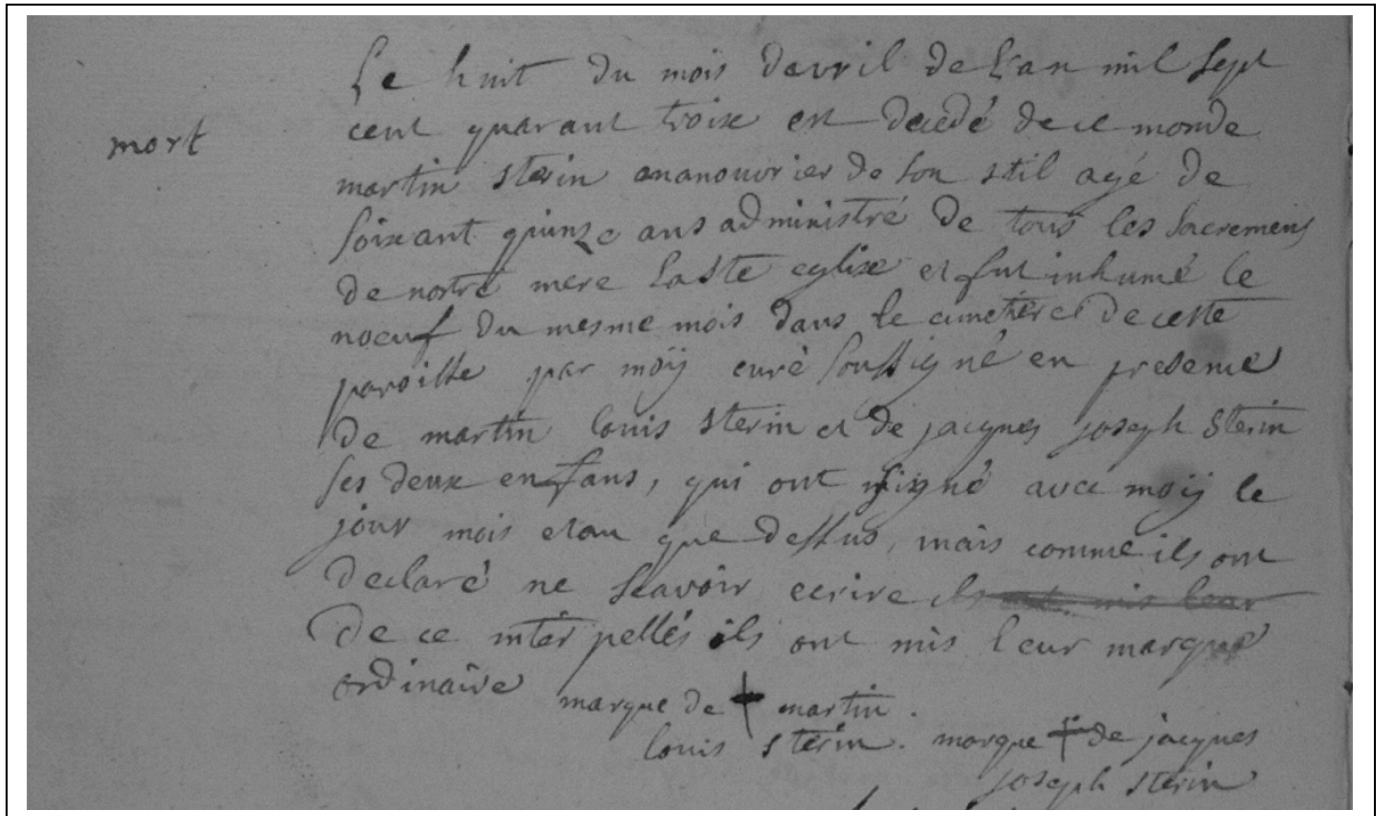 mort
Le huit du mois davril de l'an mil sept
cent quarant troix est decedé de ce monde
martin sterin manouvrier de son stil agé de
soixant quinze ans administré de tous les sacremens
de nostre mere la ste eglixe et fut inhumé le
noeuf du mesme mois dans le cimetiere de ceste
paroisse par moÿ curé soussigné en presence
de martin louis sterin et de jacques joseph sterin
ses deux enfans, qui ont signé avec moÿ le
jour mois et an que dessus, mais comme ils ont
declaré ne scavoir ecrire ils ont mis leur
de ce inter pellés ils ont mis leur marque
ordinaire marque de + martin.
louis sterin. marque + de jacques
joseph sterin